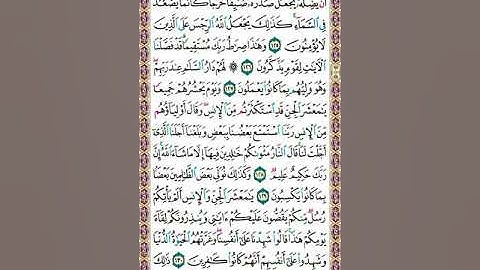 أَن يُضِلَّهُ يَجْعَلْ صَدْرَهُ ضَيِّقًا حَرَجًا كَأَنَّمَا يَصَّعَّدُ
فِي السَّمَاءِ كَذَٰلِكَ يَجْعَلُ اللَّهُ الرِّجْسَ عَلَى الَّذِينَ
لَا يُؤْمِنُونَ ١٢٥ وَهَٰذَا صِرَاطُ رَبِّكَ مُسْتَقِيمًا قَدْ فَصَّلْنَا
الْآيَاتِ لِقَوْمٍ يَذَّكَّرُونَ ١٢٦ ۞ لَهُمْ دَارُ السَّلَامِ عِندَ رَبِّهِمْ
وَهُوَ وَلِيُّهُم بِمَا كَانُوا يَعْمَلُونَ ١٢٧ وَيَوْمَ يَحْشُرُهُمْ جَمِيعًا
يَا مَعْشَرَ الْجِنِّ قَدِ اسْتَكْثَرْتُم مِّنَ الْإِنسِ وَقَالَ أَوْلِيَاؤُهُم
مِّنَ الْإِنسِ رَبَّنَا اسْتَمْتَعَ بَعْضُنَا بِبَعْضٍ وَبَلَغْنَا أَجَلَنَا الَّذِي
أَجَّلْتَ لَنَا قَالَ النَّارُ مَثْوَاكُمْ خَالِدِينَ فِيهَا إِلَّا مَا شَاءَ اللَّهُ إِنَّ
رَبَّكَ حَكِيمٌ عَلِيمٌ ١٢٨ وَكَذَٰلِكَ نُوَلِّي بَعْضَ الظَّالِمِينَ بَعْضًا
بِمَا كَانُوا يَكْسِبُونَ ١٢٩ يَا مَعْشَرَ الْجِنِّ وَالْإِنسِ أَلَمْ يَأْتِكُمْ
رُسُلٌ مِّنكُمْ يَقُصُّونَ عَلَيْكُمْ آيَاتِي وَيُنذِرُونَكُمْ لِقَاءَ
يَوْمِكُمْ هَٰذَا قَالُوا شَهِدْنَا عَلَىٰ أَنفُسِنَا وَغَرَّتْهُمُ الْحَيَاةُ الدُّنْيَا
وَشَهِدُوا عَلَىٰ أَنفُسِهِمْ أَنَّهُمْ كَانُوا كَافِرِينَ ١٣٠ ذَٰلِكَ